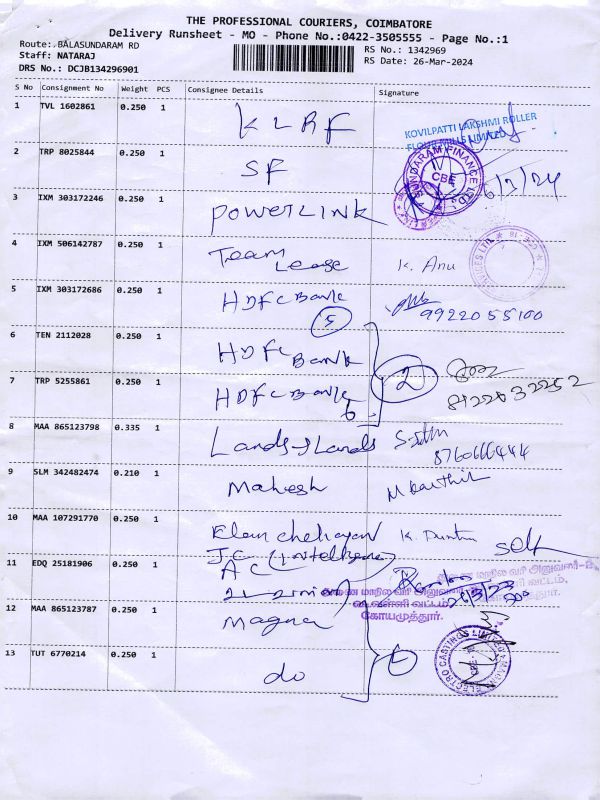 THE PROFESSIONAL COURIERS, COIMBATORE
Delivery Runsheet - MO - Phone No.:0422-3505555 - Page No.:1
Route: BALASUNDARAM RD
Staff: NATARAJ
DRS No.: DCJB134296901
RS No.: 1342969
RS Date: 26-Mar-2024
S No Consignment No Weight PCS Consignee Details Signature
1 TVL 1602861 0.250 1 KLRF
KOVILPATTI LAKSHMI ROLLER
FLOUR MILLS LIMITED
2 TRP 8025844 0.250 1 SF
SUNDARAM FINANCE LTD.
CBE
3 IXM 303172246 0.250 1 POWERLINK
4 IXM 506142787 0.250 1 Team Lease K. Anu
5 IXM 303172686 0.250 1 HDFC Bank
5
9922055100
6 TEN 2112028 0.250 1 HDFC Bank
2
7 TRP 5255861 0.250 1 HDFC Bank
8 MAA 865123798 0.335 1 Lands Lands
8760666444
9 SLM 342482474 0.210 1 Mahesh M Karthik
10 MAA 107291770 0.250 1 Elancheliyan K. Self
11 EDQ 25181906 0.250 1 J.C (Intelligence)
AC
துணை மாநில வரி அலுவலர்
கோயமுத்தூர்.
12 MAA 865123787 0.250 1 Magna
MAGNA ELECTRO CASTINGS LIMITED
13 TUT 6770214 0.250 1 do